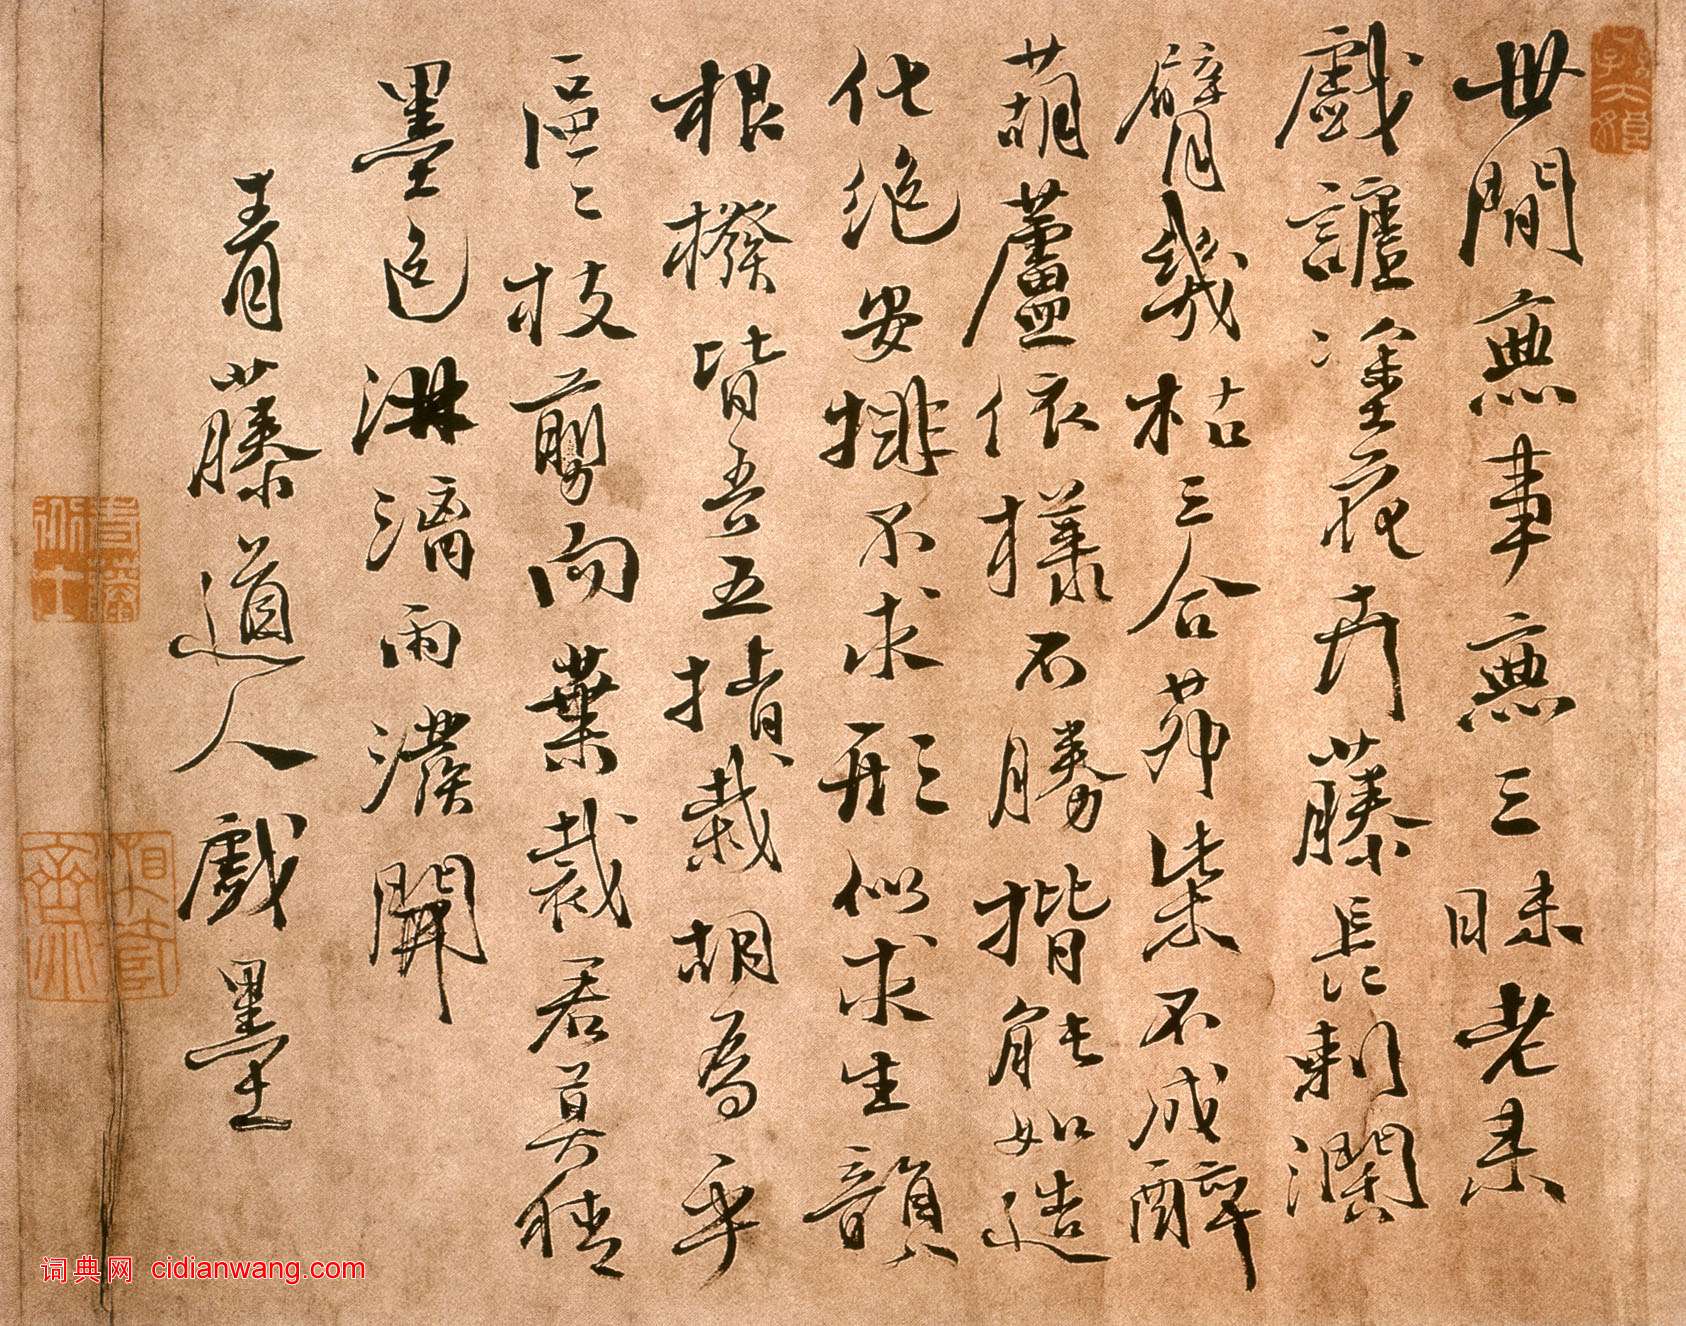 世間無事無三昧老来
戲謔塗花卉藤長刺濶
臂幾枯三合茆柴不成醉
葫蘆依樣不勝揩能如造
化絶安排不求形似求生韻
根撥皆吾五指栽胡為乎
區〻枝剪而葉裁君莫猜
墨色淋漓雨潑開
青藤道人戲墨
词典网 cidianwang.com